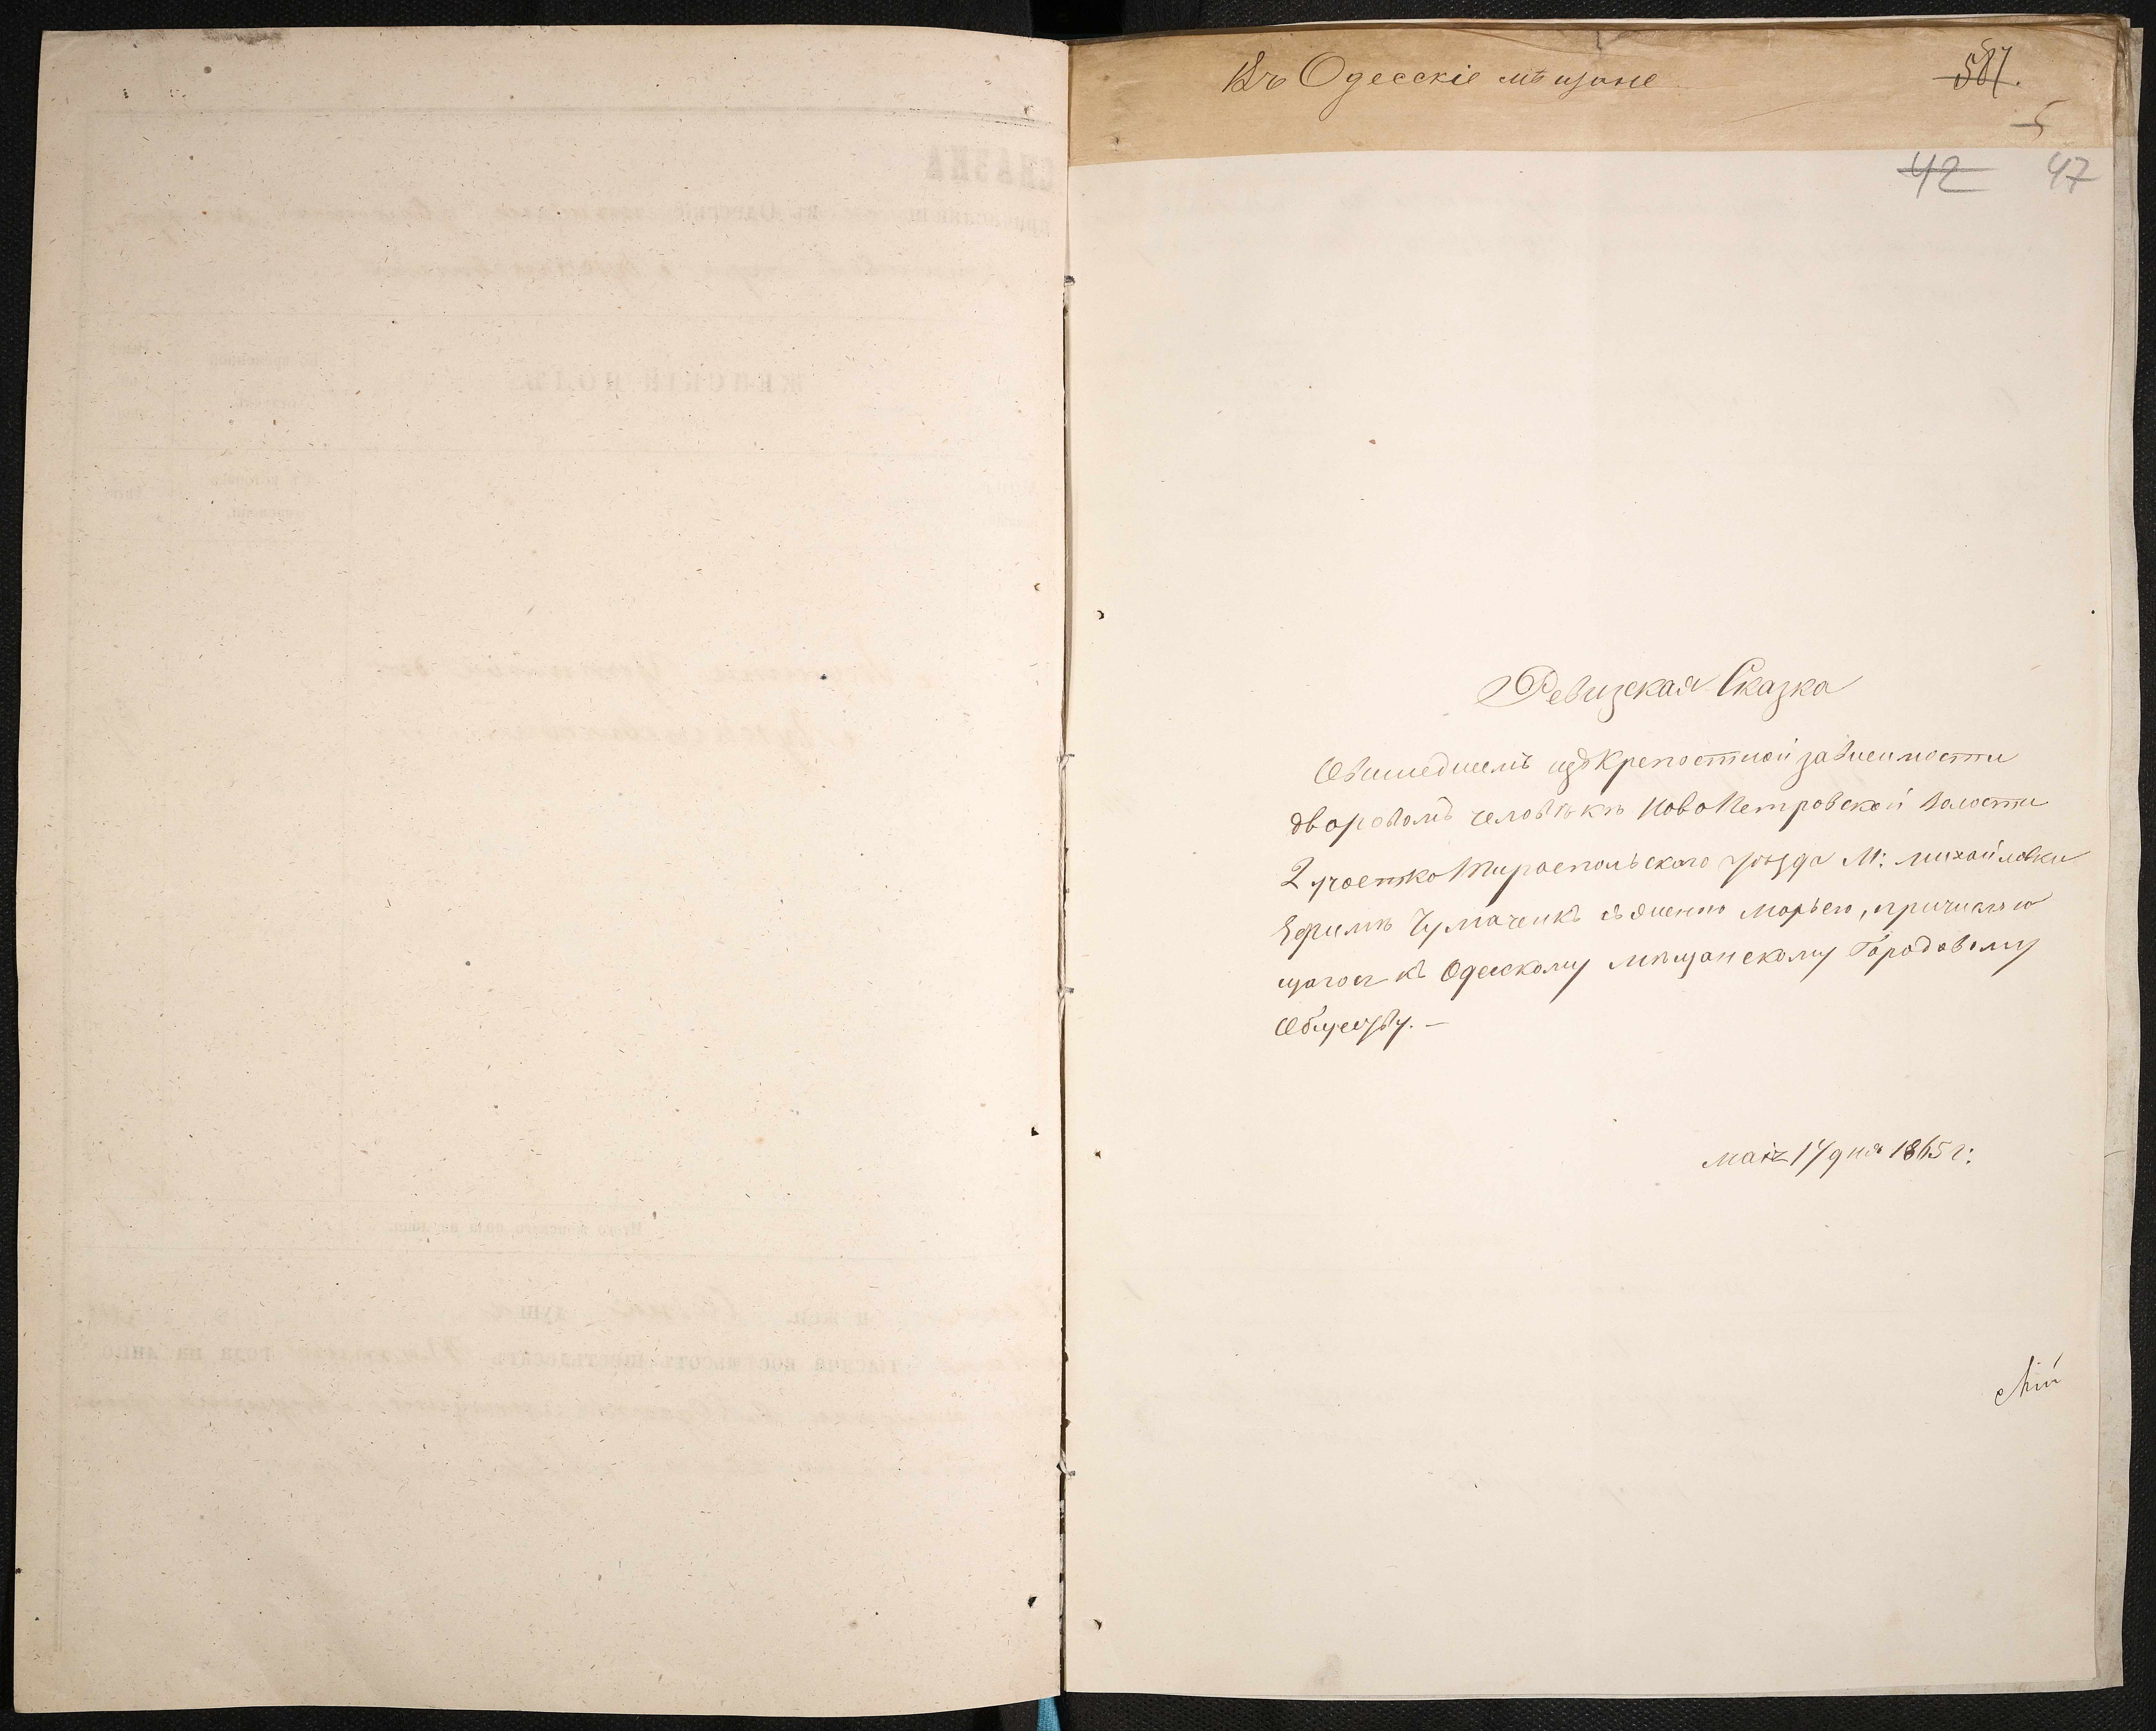 Въ Одесскіе мѣщане
587.
5
42 47
Ревизская Сказка
О вышедшемъ изъ Крепостной зависимости
дворовомъ человѣкѣ Ново Петровской волости
2 участка Тираспольского уѣзда М: Михайловки
Ефимѣ Чумаченкѣ съ женою Марьею, причисляю
щагося къ Одесскому мѣщанскому Городовому
Обществу. —
маія 14 дня 1865 г: